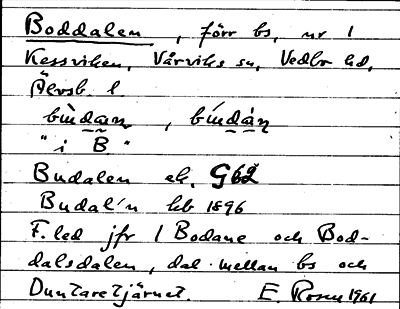 Boddalen, förr bs, nr 1
Kessviken, Vårviks sn, Vedbo hd,
Älvsb. l
bùdan, búdàn
"i B."
Budalen ek. G62
Budal'n hb 1896
F.led jfr 1 Bodane och Bod-
dalsdalen, dal mellan bs och
Duntaretjärnet. E. Rosen 1961